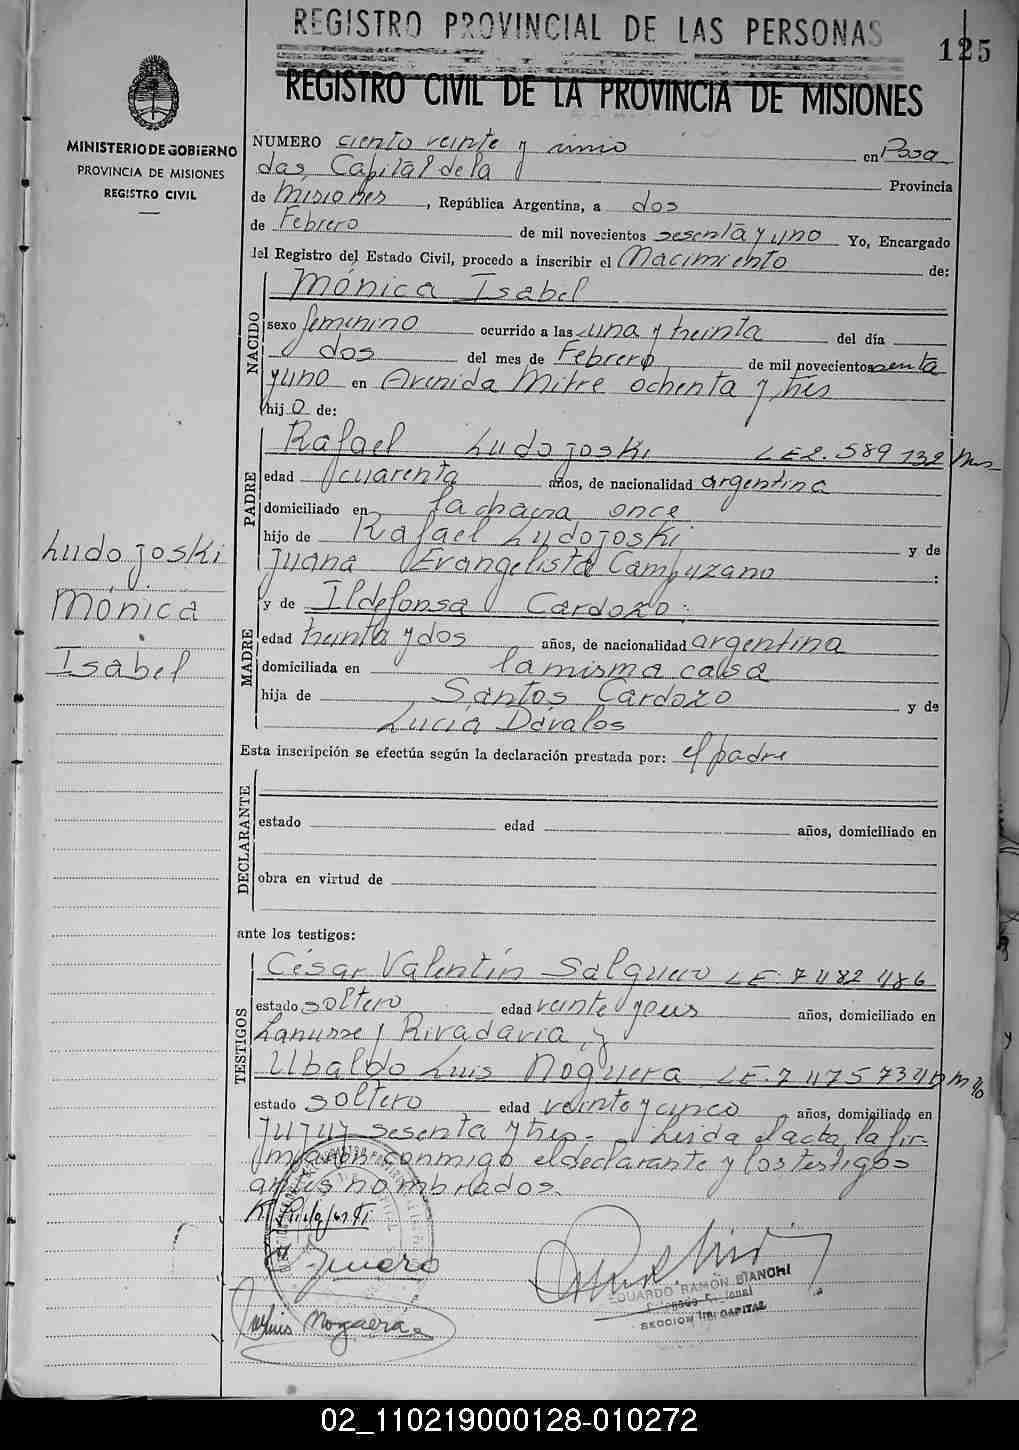 REGISTRO PROVINCIAL DE LAS PERSONAS
125
REGISTRO CIVIL DE LA PROVINCIA DE MISIONES
MINISTERIO DE GOBIERNO
PROVINCIA DE MISIONES
REGISTRO CIVIL
NUMERO ciento veinte y uno en Posa
das, Capital de la Provincia
de Misiones, República Argentina, a dos
de Febrero de mil novecientos sesenta y uno Yo, Encargado
del Registro del Estado Civil, procedo a inscribir el Nacimiento de:
NACIDO
Mónica Isabel
sexo femenino ocurrido a las una y treinta del día
dos del mes de Febrero de mil novecientos senta
y uno en Avenida Mitre ochenta y tres
hij o de:
PADRE
Rafael Ludojoski LE 2.589 132
edad cuarenta años, de nacionalidad argentina
domiciliado en la chacra once
hijo de Rafael Ludojoski y de
Juana Evangelista Campuzano :
MADRE
y de Ildefonsa Cardozo:
edad treinta y dos años, de nacionalidad argentina
domiciliada en la misma casa
hija de Santos Cardozo y de
Lucia Dávalos
Ludojoski
Mónica
Isabel
Esta inscripción se efectúa según la declaración prestada por: el padre
DECLARANTE
estado edad años, domiciliado en
obra en virtud de
ante los testigos:
TESTIGOS
César Valentín Salguero LE. 7 482 486
estado soltero edad veinte y seis años, domiciliado en
Lanusse y Rivadavia, y
Ubaldo Luis Noguera LE. 7 475 734
estado soltero edad veinte y cinco años, domiciliado en
Jujuy sesenta y tres.- Leida el acta, la fir-
man conmigo el declarante y los testigos
antes nombrados.
R. Ludojoski
Luis Noguera
EDUARDO RAMON BIANCHI
SECCION CAPITAL
02_110219000128-010272